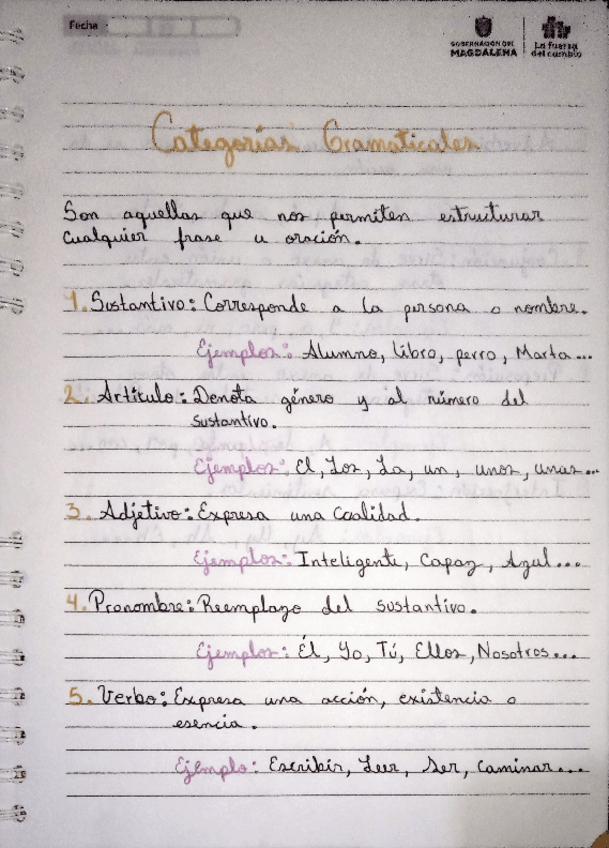 Fecha
GOBERNACIÓN DEL
MAGDALENA
La fuerza
del cambio
Categorías Gramaticales
Son aquellas que nos permiten estructurar
cualquier frase u oración.
1. Sustantivo: Corresponde a la persona o nombre.
Ejemplos: Alumno, libro, perro, Marta...
2. Artítulo: Denota género y al número del
sustantivo.
Ejemplos: El, Los, La, un, unos, unas...
3. Adjetivo: Expresa una Caalidad.
Ejemplos: Inteligente, Capaz, Azul...
4. Pronombre: Reemplazo del sustantivo.
Ejemplos: Él, Yo, Tú, Ellos, Nosotros...
5. Verbo: Expresa una acción, existencia o
esencia.
Ejemplo: Escribir, Leer, Ser, Caminar...